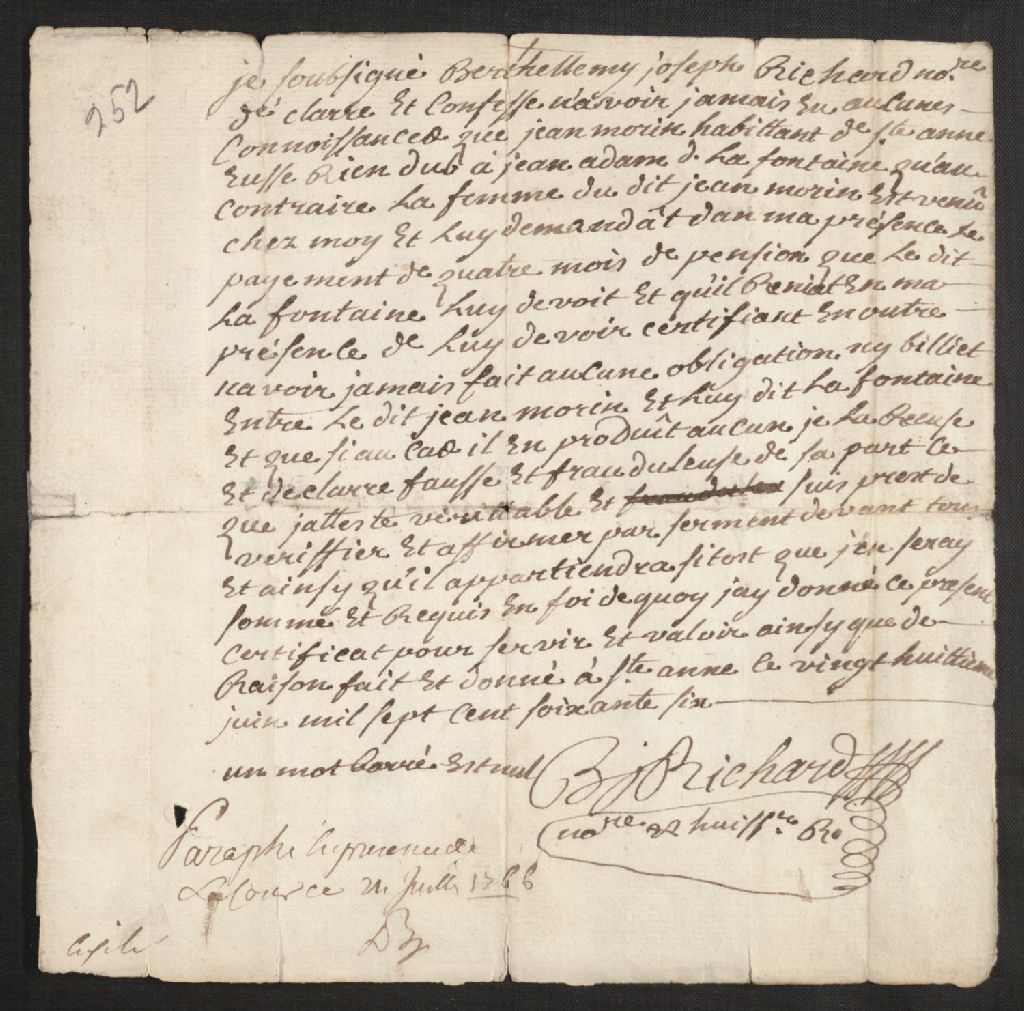 252
je soubsigné Berthellemy joseph Richard no.re
déclarre Et Confesse n'avoir jamais Eu aucunes
Connoissances que jean morin habittant de ste anne
Eusse Rien dub à jean adam d. La fontaine qu'au
contraire La femme du dit jean morin Est venû
chez moy Et Luy demandât dan ma présence Le
payement de quatre mois de pension que Le dit
La fontaine Luy devoit Et qu'il Reniat En ma
présence de Luy devoir certifiant En outre
navoir jamais fait aucune obligation ny billiet
Entre Le dit jean morin Et Luy dit La fontaine
Et que si au Cas il En produît aucun je La Récuse
Et declarre fausse Et frauduleuse de sa part Ce
que jatteste verittable Et suis prest de
veriffier Et affirmer par serment devant tous
Et ainsy qu'il appartiendra sitost que j'en seray
sommé Et Requis En foi de quoy jay donné ce present
Certificat pour servir Et valoir ainsy que de
Raison fait Et donné à ste anne le vingt huittieme
juin mil sept Cent soixante six
un mot barré Est nul
BjRichard
no.re et huissre Ro
Paraphé
21 Juill. 1766